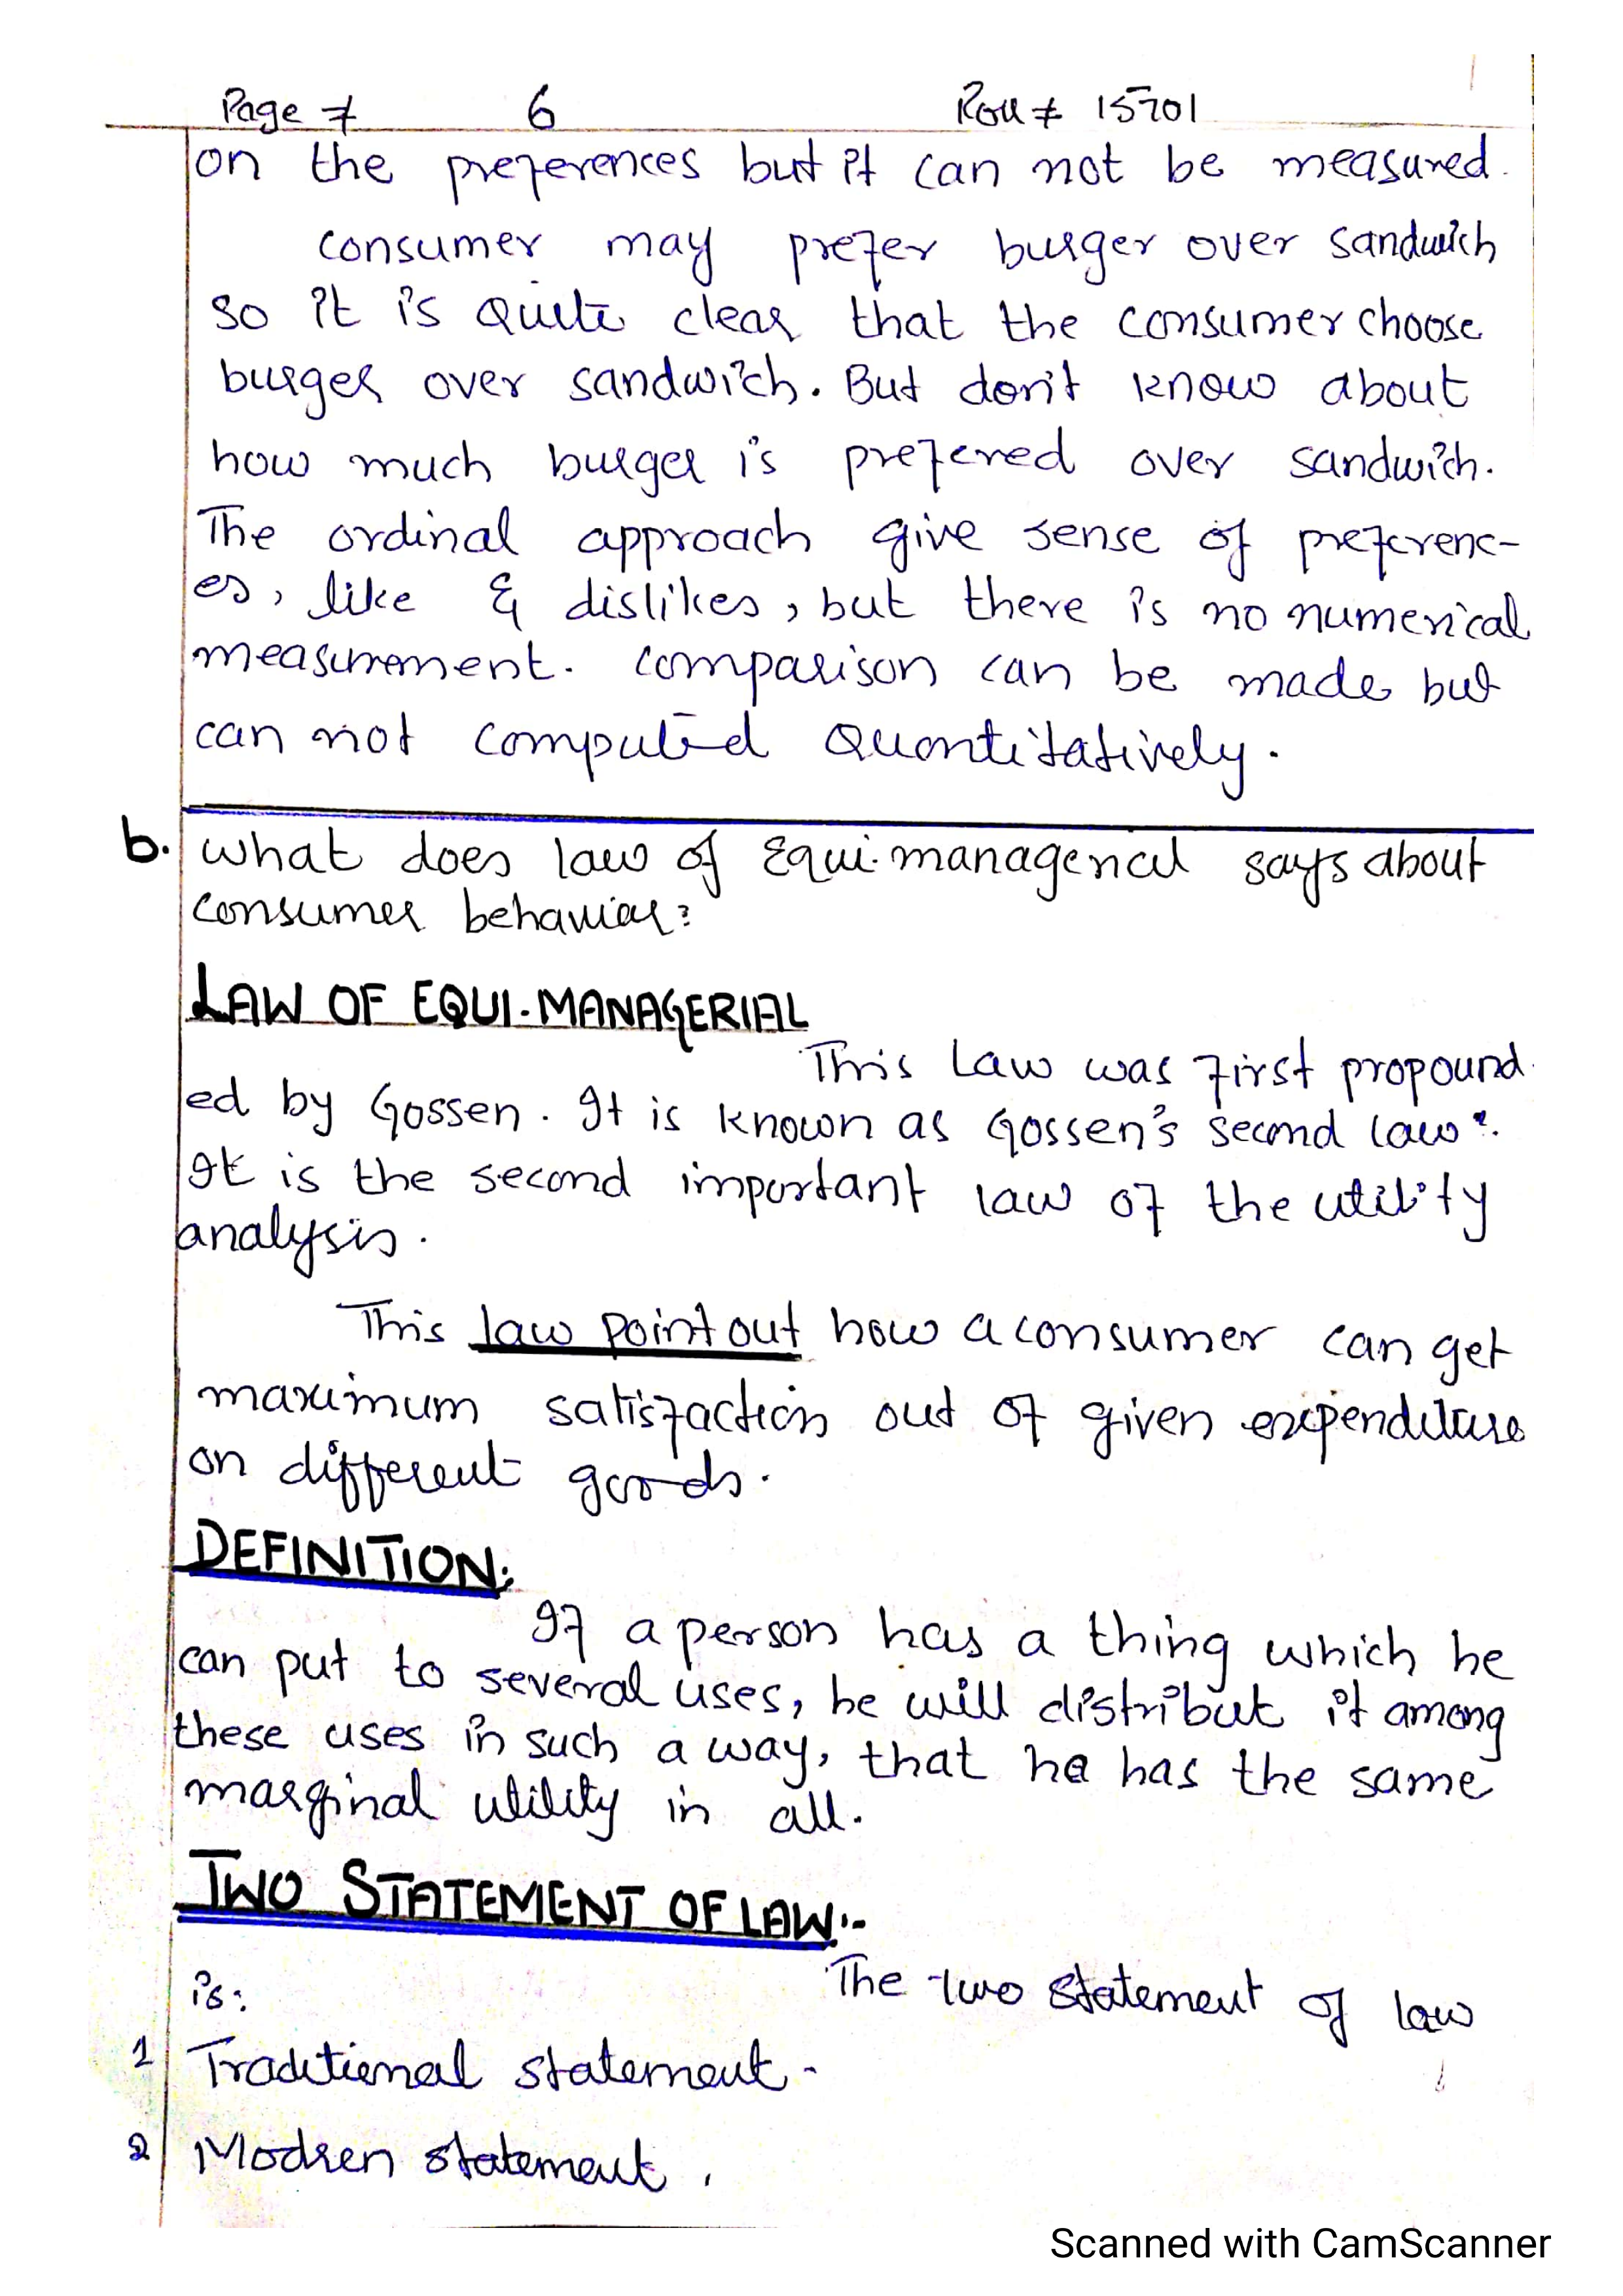 Page # 6 Roll # 15701
on the preferences but it can not be measured.
consumer may prefer burger over sandwich
so it is quite clear that the consumer choose
burger over sandwich. But don't know about
how much burger is prefered over sandwich.
The ordinal approach give sense of preferenc-
es, like & dislikes, but there is no numerical
measurement. comparison can be made but
can not computed Quantitatively.
b. What does law of Equi.managerial says about
consumer behavior?
LAW OF EQUI.MANAGERIAL
This Law was first propound
ed by Gossen. It is known as Gossen's second law".
It is the second important law of the utility
analysis.
This law point out how a consumer can get
maximum satisfaction out of given expenditure
on different goods.
DEFINITION:
If a person has a thing which he
can put to several uses, he will distribut it among
these uses in such a way, that he has the same
marginal utility in all.
TWO STATEMENT OF LAW:-
The two statement of law
is:
1 Traditional statement.
2 Modren statement.
Scanned with CamScanner